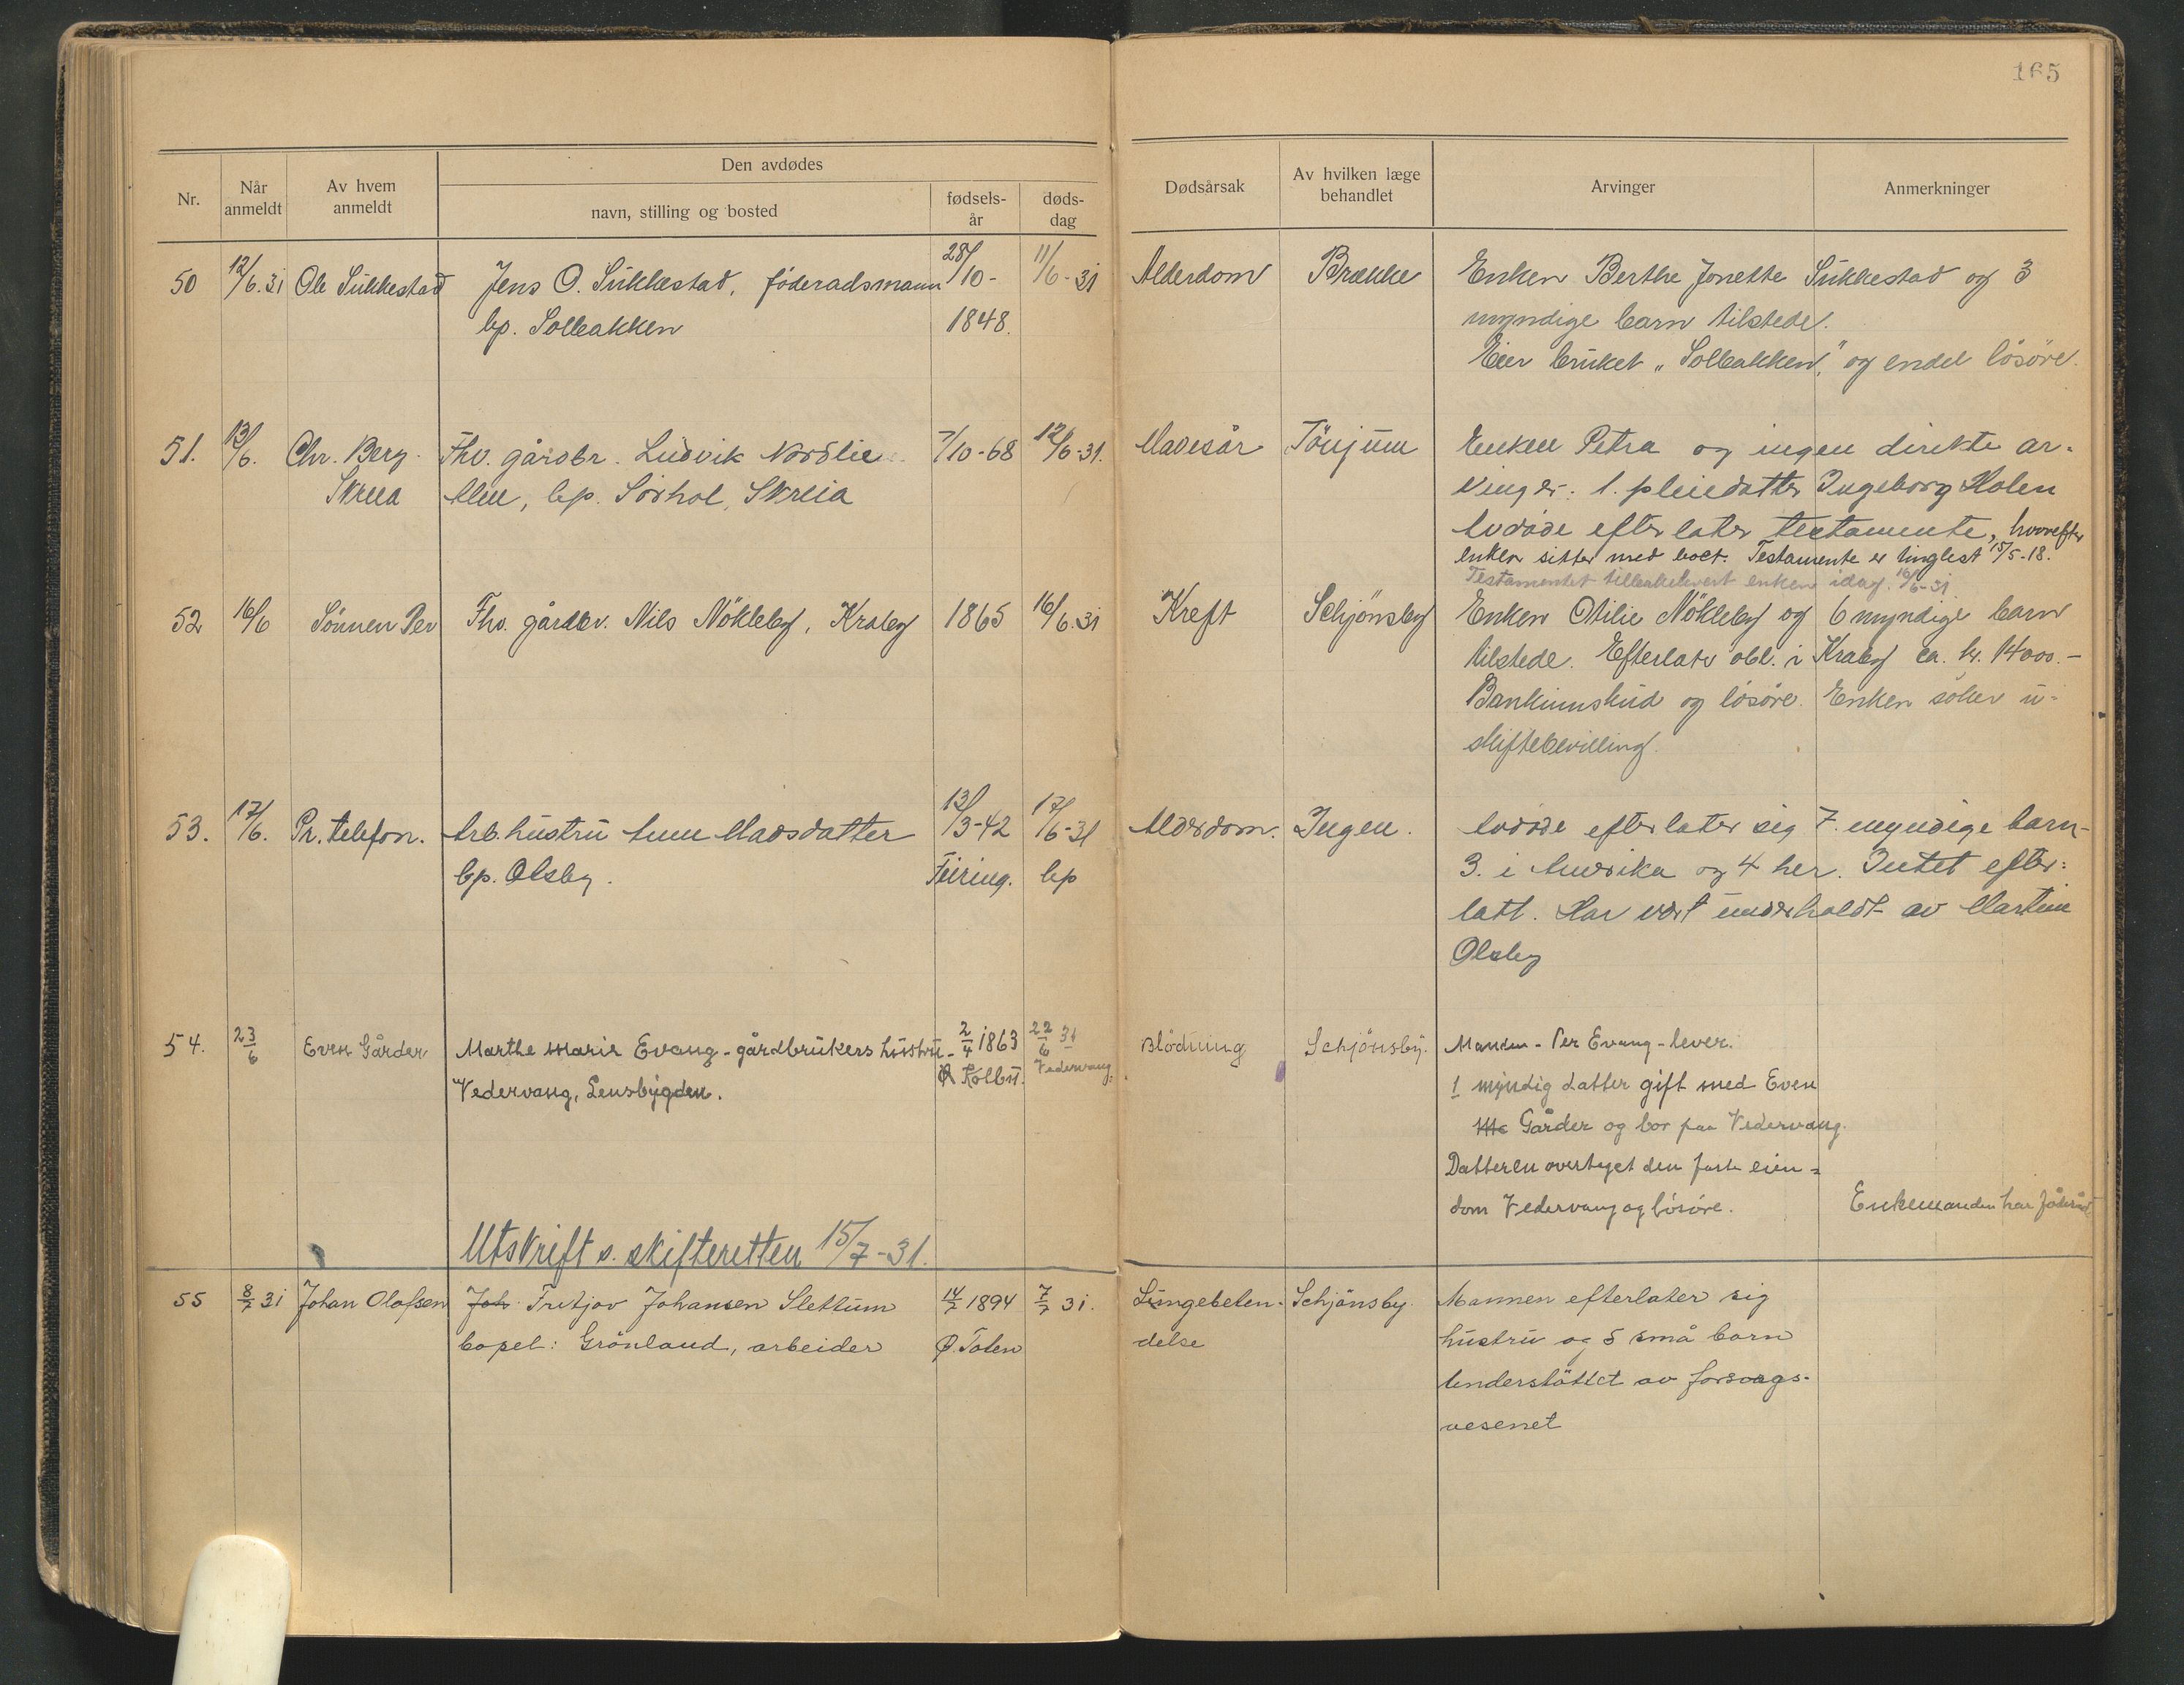 165
Den avdødes
Nr.
Når anmeldt
Av hvem anmeldt
navn, stilling og bosted
fødsels-år
døds-dag
Dødsårsak
Av hvilken læge behandlet
Arvinger
Anmerkninger
50 12/6.31 Ole Sukkestad Jens O. Sukkestad, føderadsmann 28/10- 11/6-31 Alderdom Brække Enken Berthe Jonette Sukkestad og 3
bp. Solbakken 1848. myndige barn tilstede.
Eier bruket „Solbakken," og endel løsøre.
51. 13/6. Chr. Berg Fhv. gårdbr. Ludvik Nordlie 7/10-68 12/6-31. Mavesår Tönjum Enken Petra og ingen direkte ar-
Skreia bp. Sørhol, Skreia vinger. 1. pleiedatter Ingeborg Holen
Avdøde efterlater testamente, hvorefter
enken sitter med boet. Testamente er tinglest 15/5-18.
Testamentet tilbakelevert enken idag. 16/6-31.
52 16/6 Sønnen Per Fhv. gårdbr. Nils Nökleby, Kraby 1865 16/6.31 Kreft Schjönsby Enken Otilie Nökleby og 6 myndige barn
tilstede. Efterlater obl. i Kraby ca. kr. 14000.-
Bankinnskud og løsøre. Enken søker u-
skiftebevilling.
53. 17/6. Pr. telefon. Arb. hustru Anne Madsdatter 13/3-42 17/6-31 Alderdom. Ingen. Avdøde efterlater sig 7 myndige barn-
bp. Olsby. Feiring. bp 3. i Amerika og 4 her. Intet efter-
latt. Har vært underholdt av Martin
Olsby
54. 23/6 Even Gårder Marthe Marie Evang - gårdbrukers hustru - 2/4 1863 22/6 31 Blödning Schjönsby. Manden - Per Evang - lever.
Vedervang, Lensbygden. Kolbu. Vedervang. 1 myndig datter gift med Even
Me Gårder og bor paa Vedervang.
Datteren overtaget den faste eien-
dom Vedervang og løsøre. Enkemanden har føderåd
Utskrift s. skifteretten 15/7-31.
55 8/7 31 Johan Olafsen Joh Fritjov Johansen Slettum 14/2 1894 7/7 31. Lungebeten- Schjönsby. Mannen efterlater sig
bopel: Grönland, arbeider Ø. Toten delse hustru og 5 små barn
Understöttet av forsorgs-
vesenet